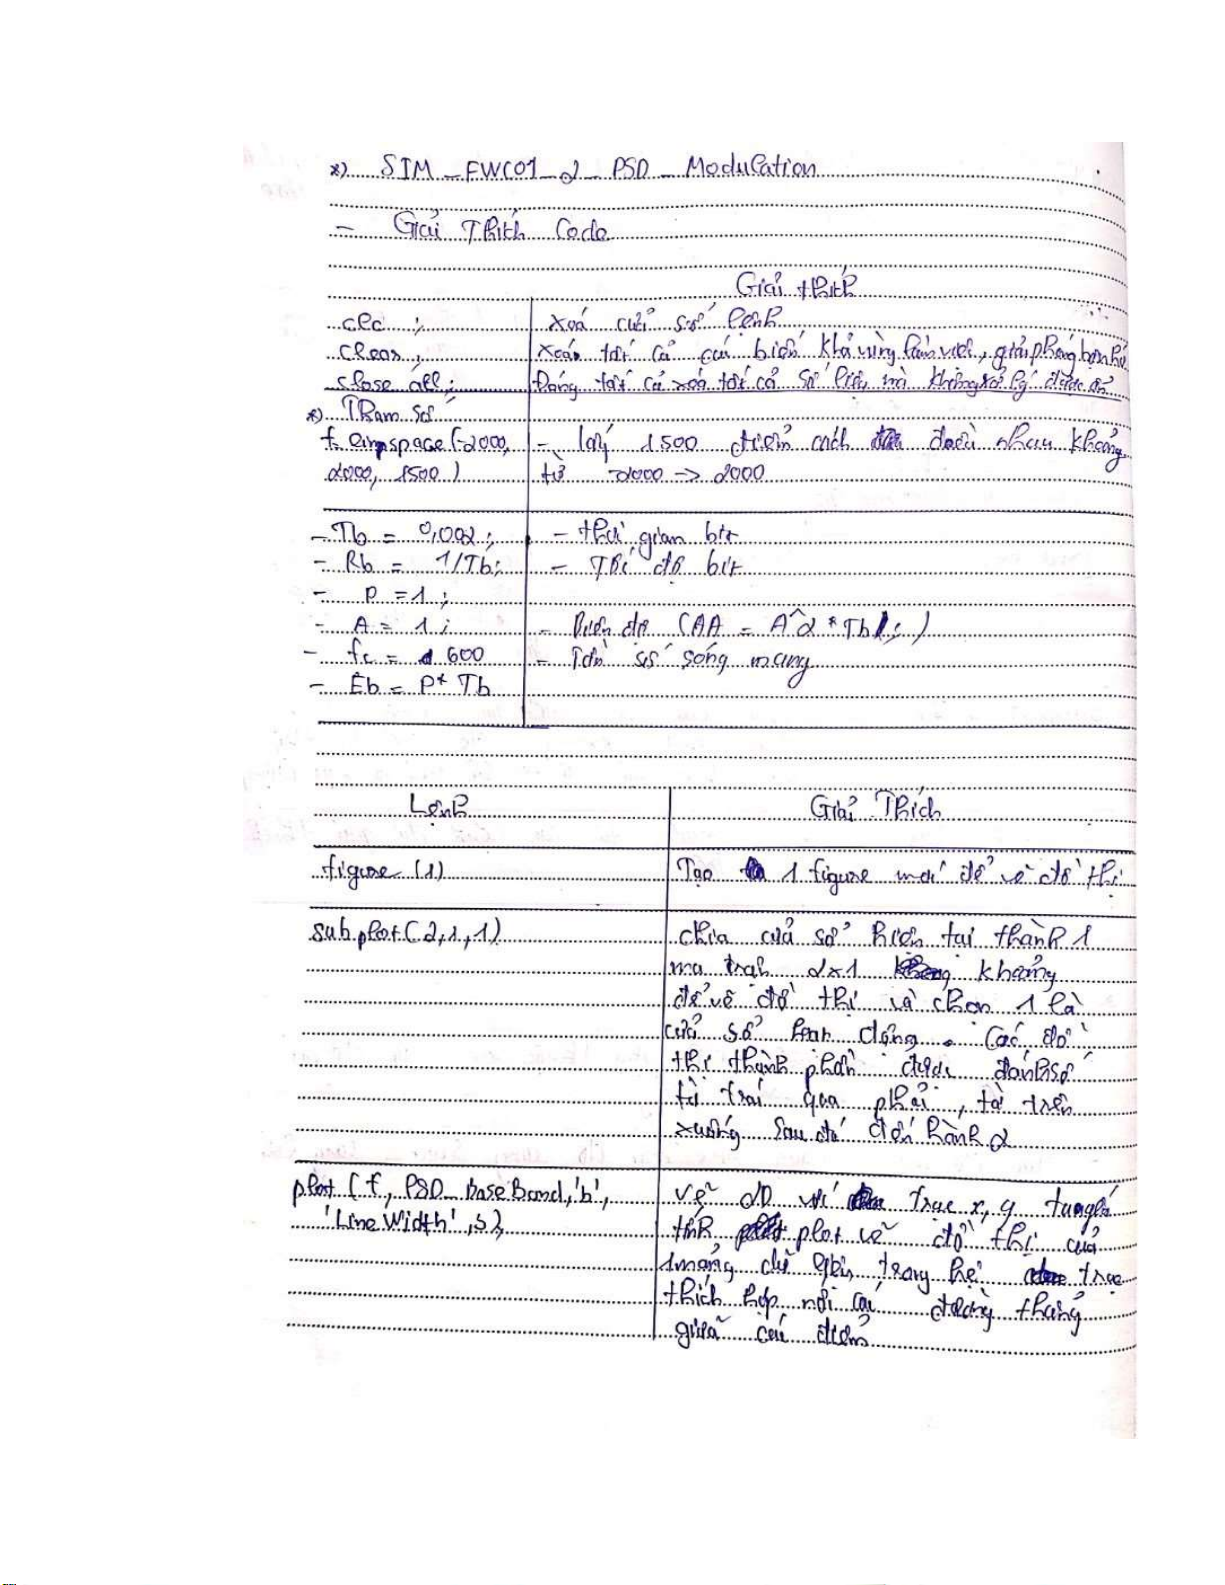 *) SIM_FWC01_2_PSD_Modulation
- Giải Thích Code
Giải thích
clc ; xoá cửa sổ lệnh
clear ; xoá tất cả các biến khỏi vùng làm việc, giải phóng bộ nhớ
close all ; Đóng tất cả xoá tất cả số liệu mà không xử lý được
*) Tham số
f linspace(-2000, - lấy 1500 điểm cách đều nhau khoảng
2000, 1500 ) từ -2000 -> 2000
- Tb = 0,002 ; - thời gian bit
- Rb = 1/Tb ; - Tốc độ bit
- P = 1 ;
- A = 1 ; - Biên độ (AA = A^2 * Tb ; )
- fc = 600 - Tần số sóng mang
- Eb = P* Tb
Lệnh Giải Thích
figure (1) Tạo 1 figure mới để vẽ đồ thị
subplot(2,1,1) chia cửa sổ hiện tại thành 1
ma trận 2x1 khoảng
để vẽ đồ thị và chọn 1 là
cửa sổ hoạt động. Các đồ
thị thành phần được đánh số
từ trái qua phải, từ trên
xuống sau đó đến hành 2
plot (f, PSD_BaseBand,'b', vẽ 2D với trục x, y
'LineWidth', plot vẽ đồ thị của
1 mảng dữ liệu trong hệ trục
thích hợp nối các đường thẳng
giữa các điểm